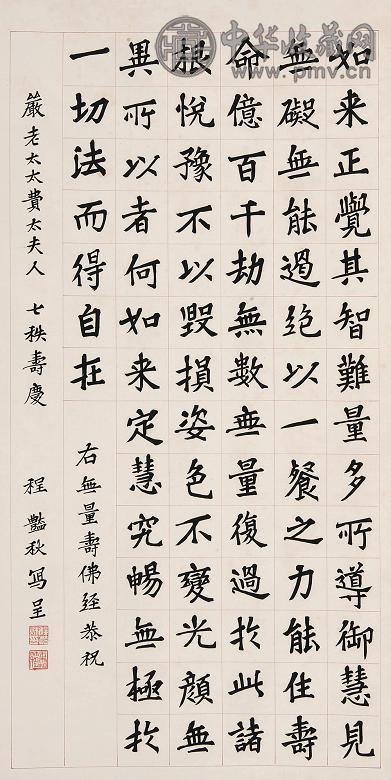 如来正覺其智難量多所導御慧見
無礙無能遏绝以一餐之力能住壽
命億百千劫無數無量復過於此諸
根悅豫不以毀損姿色不變光顔無
異所以者何如来定慧究暢無極於
一切法而得自在
右無量壽佛经恭祝
嚴老太太費太夫人 七秩壽慶
程豔秋寫呈
中华收藏网
www.pmv.cn